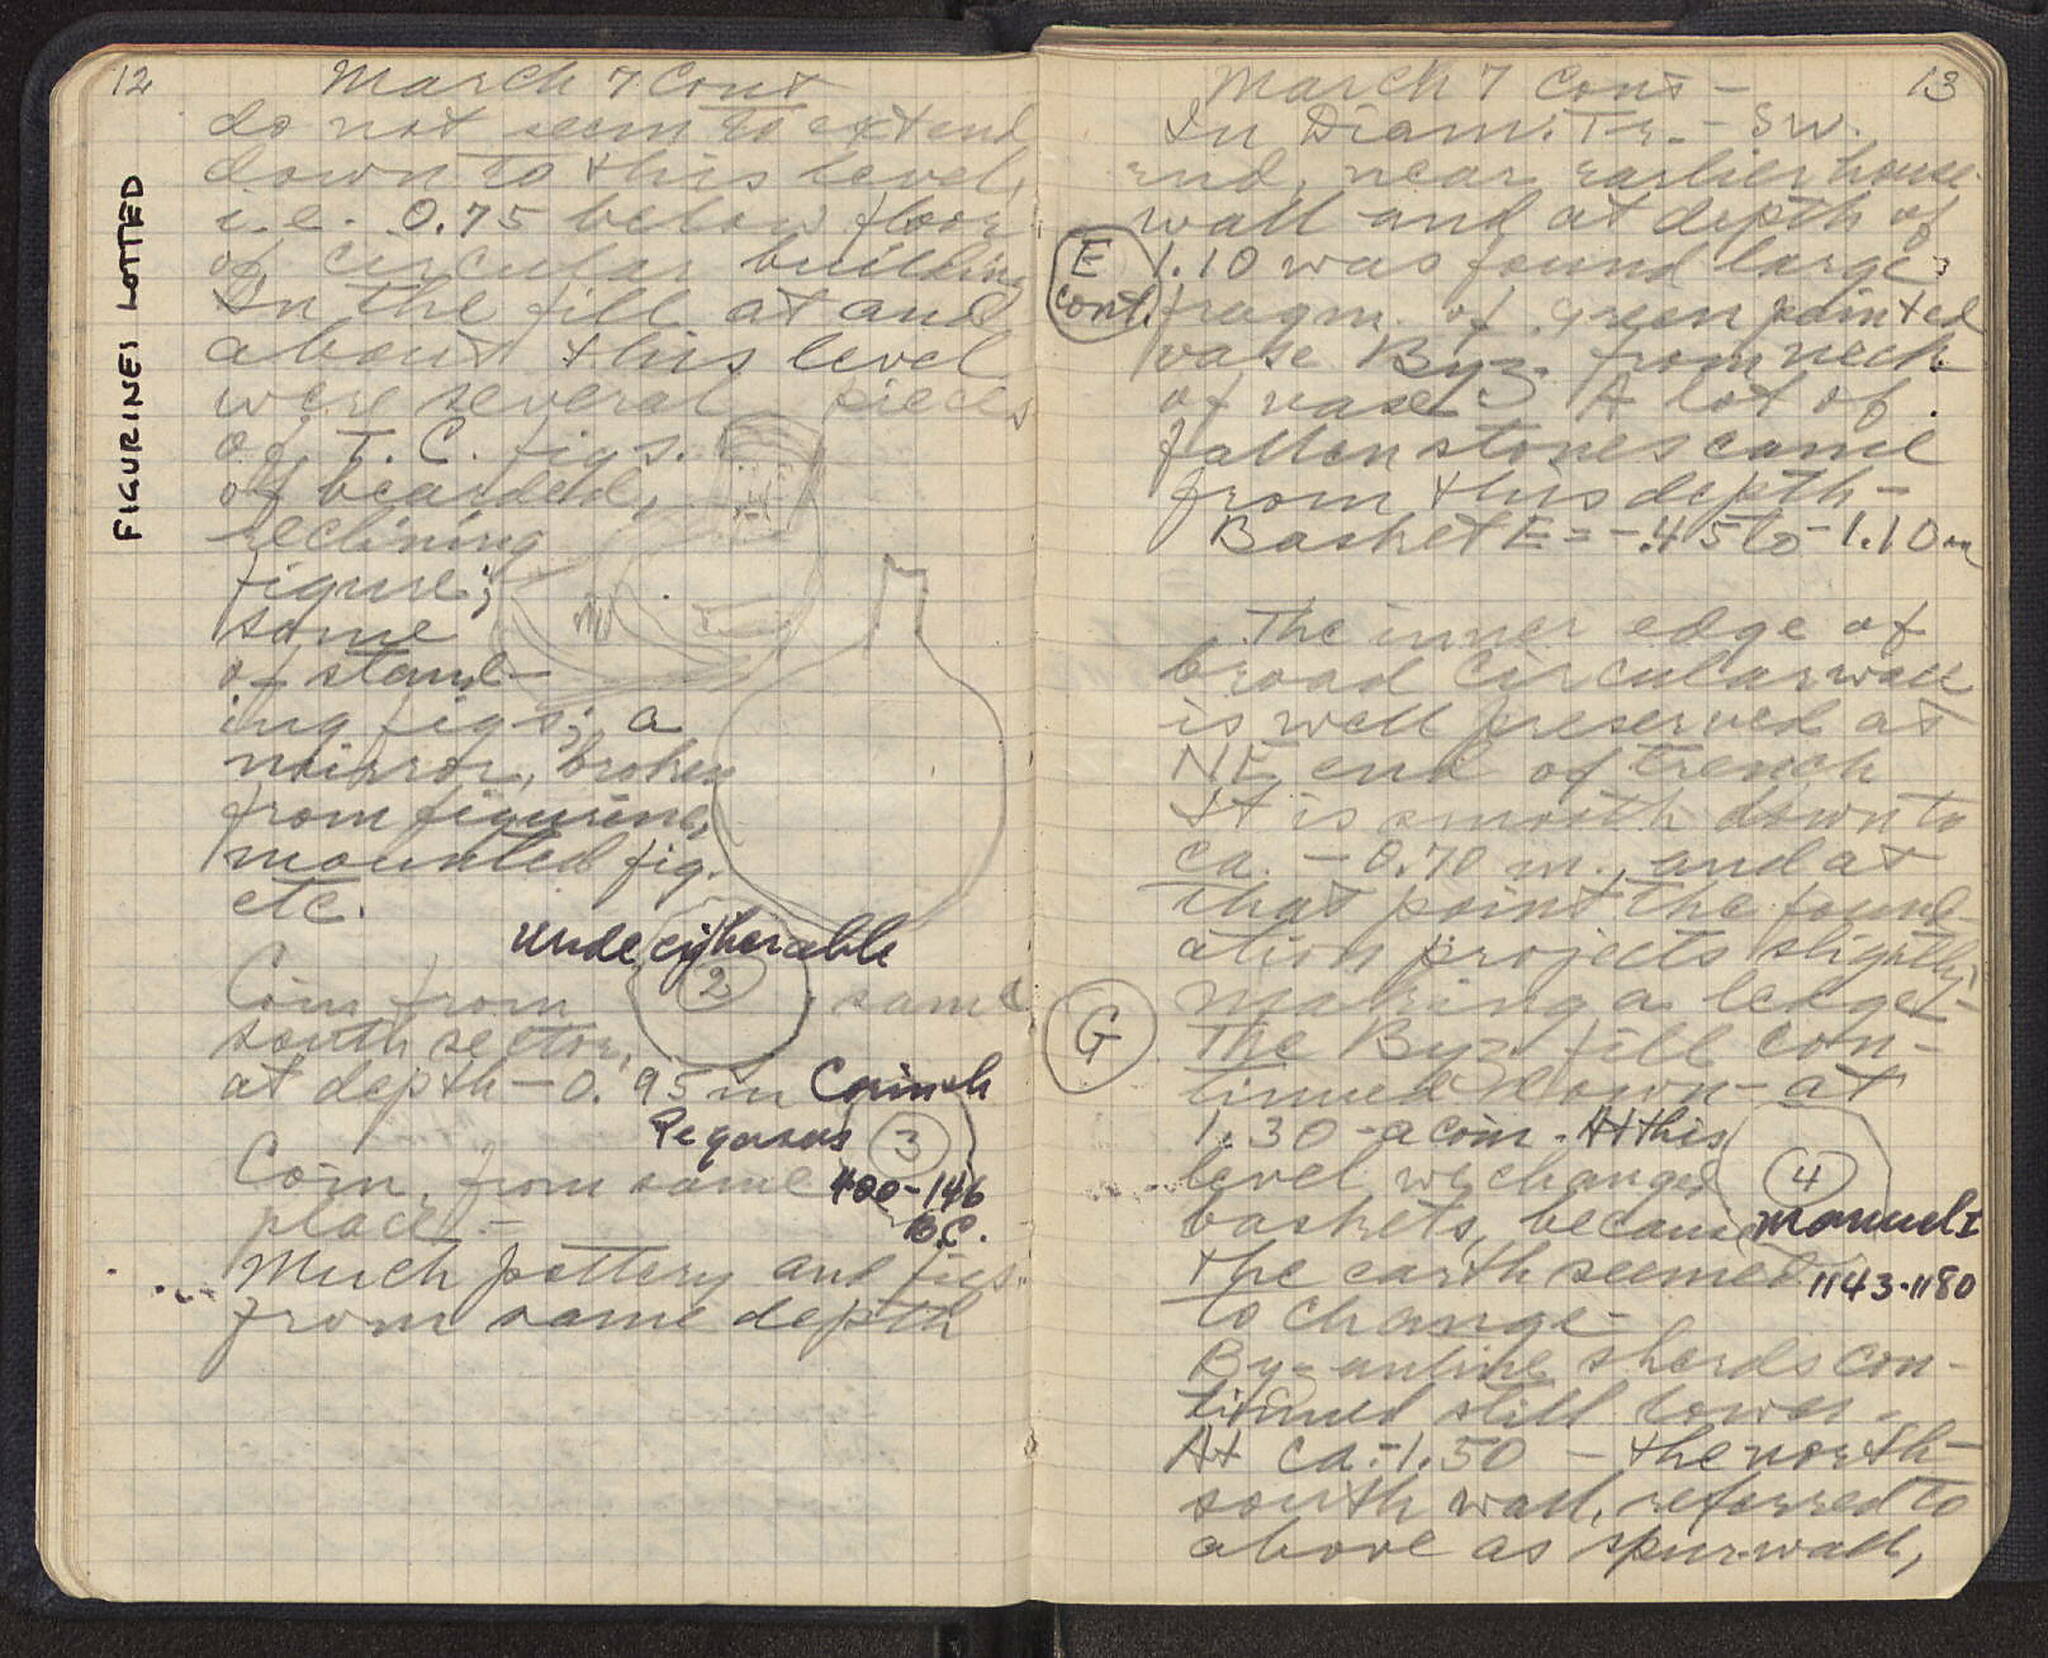 12
March 7 Cont
FIGURINES LOTTED
do not seem to extend
down to this level,
i.e. 0.75 below floor
of circular building
In the fill at and
about this level
were several pieces
of T. C. figs.
of bearded,
reclining
figure;
some
of stand-
ing figs; a
mirror, broken
from figurine,
mounted fig.
etc.
undecipherable
Coin from 2 same
south sector,
at depth - 0.95 m Corinth
Pegasus 3
Coin, from same 400-146
place - B.C.
Much pottery and figs.
from same depth
13
March 7 Cont -
In Diam. Tr. - SW.
end, near earlier house-
wall and at depth of
E cont.
1.10 was found large
fragm. of green painted
vase Byz. from neck
of vase. A lot of
fallen stones came
from this depth -
Basket E = -.45 to -1.10 m
The inner edge of
broad circular wall
is well preserved at
NE end of trench
It is smooth down to
ca. - 0.70 m., and at
that point the found-
ation projects slightly,
making a ledge -
G
The Byz. fill con-
tinued down - at
1.30 - a coin. At this
level we changed 4
baskets, because Manuel I
the earth seemed 1143-1180
to change -
Byzantine sherds con-
tinued still lower.
At ca. -1.50 - the north-
south wall, referred to
above as spur-wall,